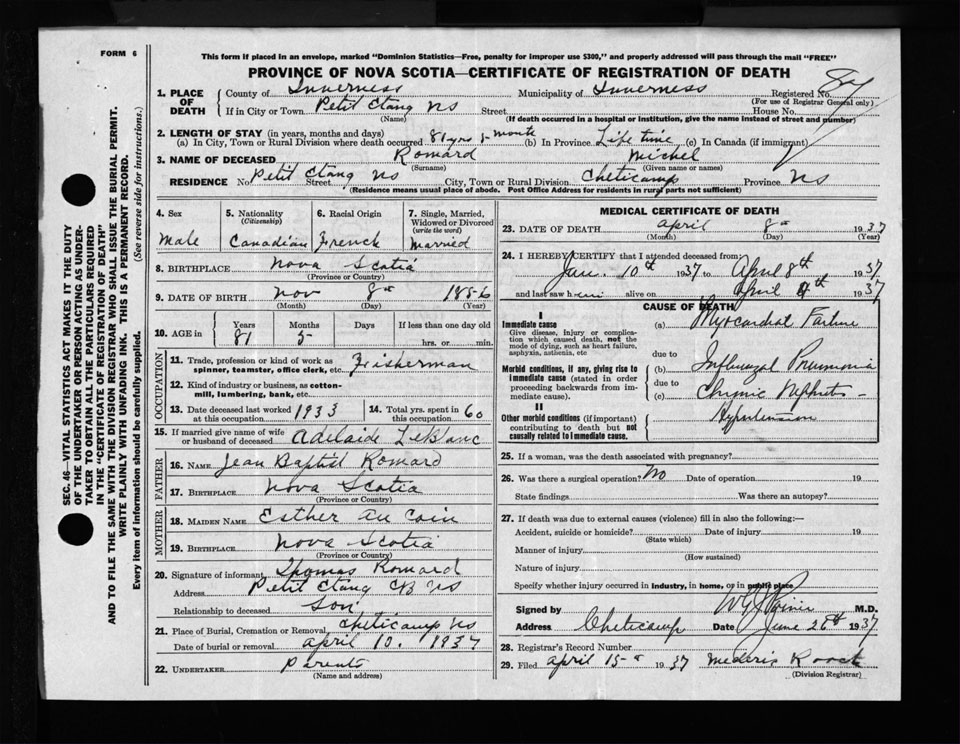 FORM 6
This form if placed in an envelope, marked "Dominion Statistics—Free, penalty for improper use $300," and properly addressed will pass through the mail "FREE"
PROVINCE OF NOVA SCOTIA—CERTIFICATE OF REGISTRATION OF DEATH
1. PLACE OF DEATH County of Inverness Municipality of Inverness Registered No.
(For use of Registrar General only)
If in City or Town Petit Etang NS Street House No.
(Name) (If death occurred in a hospital or institution, give the name instead of street and number)
2. LENGTH OF STAY (in years, months and days)
(a) In City, Town or Rural Division where death occurred 81 yrs 5 month (b) In Province Life time (c) In Canada (if immigrant)
3. NAME OF DECEASED Romard Michel
(Surname) (Given name or names)
RESIDENCE No. Petit Etang NS Street City, Town or Rural Division Cheticamp Province NS
(Residence means usual place of abode. Post Office Address for residents in rural parts not sufficient)
4. Sex Male
5. Nationality (Citizenship) Canadian
6. Racial Origin French
7. Single, Married, Widowed or Divorced (write the word) Married
8. BIRTHPLACE Nova Scotia
(Province or Country)
9. DATE OF BIRTH Nov 8 1856
(Month) (Day) (Year)
10. AGE in Years 81 Months 5 Days If less than one day old hrs. or min.
OCCUPATION
11. Trade, profession or kind of work as spinner, teamster, office clerk, etc. Fisherman
12. Kind of industry or business, as cotton-mill, lumbering, bank, etc.
13. Date deceased last worked at this occupation 1933
14. Total yrs. spent in this occupation 60
15. If married give name of wife or husband of deceased Adelaide LeBlanc
FATHER
16. NAME Jean Baptist Romard
17. BIRTHPLACE Nova Scotia
(Province or Country)
MOTHER
18. MAIDEN NAME Esther Au Coin
19. BIRTHPLACE Nova Scotia
(Province or Country)
20. Signature of informant Thomas Romard
Address Petit Etang CB NS
Relationship to deceased Son
21. Place of Burial, Cremation or Removal Cheticamp NS
Date of burial or removal April 10. 1937
22. UNDERTAKER Parents
(Name and address)
MEDICAL CERTIFICATE OF DEATH
23. DATE OF DEATH April 8 1937
(Month) (Day) (Year)
24. I HEREBY CERTIFY that I attended deceased from:
Jan. 10th 1937 to April 8th 1937
and last saw him alive on April 1937
CAUSE OF DEATH
I
Immediate cause
Give disease, injury or complication which caused death, not the mode of dying, such as heart failure, asphyxia, asthenia, etc
(a) Myocardial Failure
due to
Morbid conditions, if any, giving rise to immediate cause (stated in order proceeding backwards from immediate cause).
(b) Influenzal Pneumonia
due to
(c) Chronic Nephritis
II
Other morbid conditions (if important) contributing to death but not causally related to immediate cause.
Hypertension
25. If a woman, was the death associated with pregnancy?
26. Was there a surgical operation? No Date of operation 19
State findings Was there an autopsy?
27. If death was due to external causes (violence) fill in also the following:—
Accident, suicide or homicide? Date of injury 19
(State which)
Manner of injury
(How sustained)
Nature of injury
Specify whether injury occurred in industry, in home, or in public place
Signed by M.D.
Address Cheticamp Date June 26th 1937
28. Registrar's Record Number
29. Filed April 15 1937
(Division Registrar)
SEC. 46—VITAL STATISTICS ACT MAKES IT THE DUTY
OF THE UNDERTAKER OR PERSON ACTING AS UNDER-
TAKER TO OBTAIN ALL THE PARTICULARS REQUIRED
IN THE "CERTIFICATE OF REGISTRATION OF DEATH"
AND TO FILE THE SAME WITH THE DIVISION REGISTRAR WHO SHALL ISSUE THE BURIAL PERMIT.
WRITE PLAINLY WITH UNFADING INK. THIS IS A PERMANENT RECORD.
Every item of information should be carefully supplied. (See reverse side for instructions.)